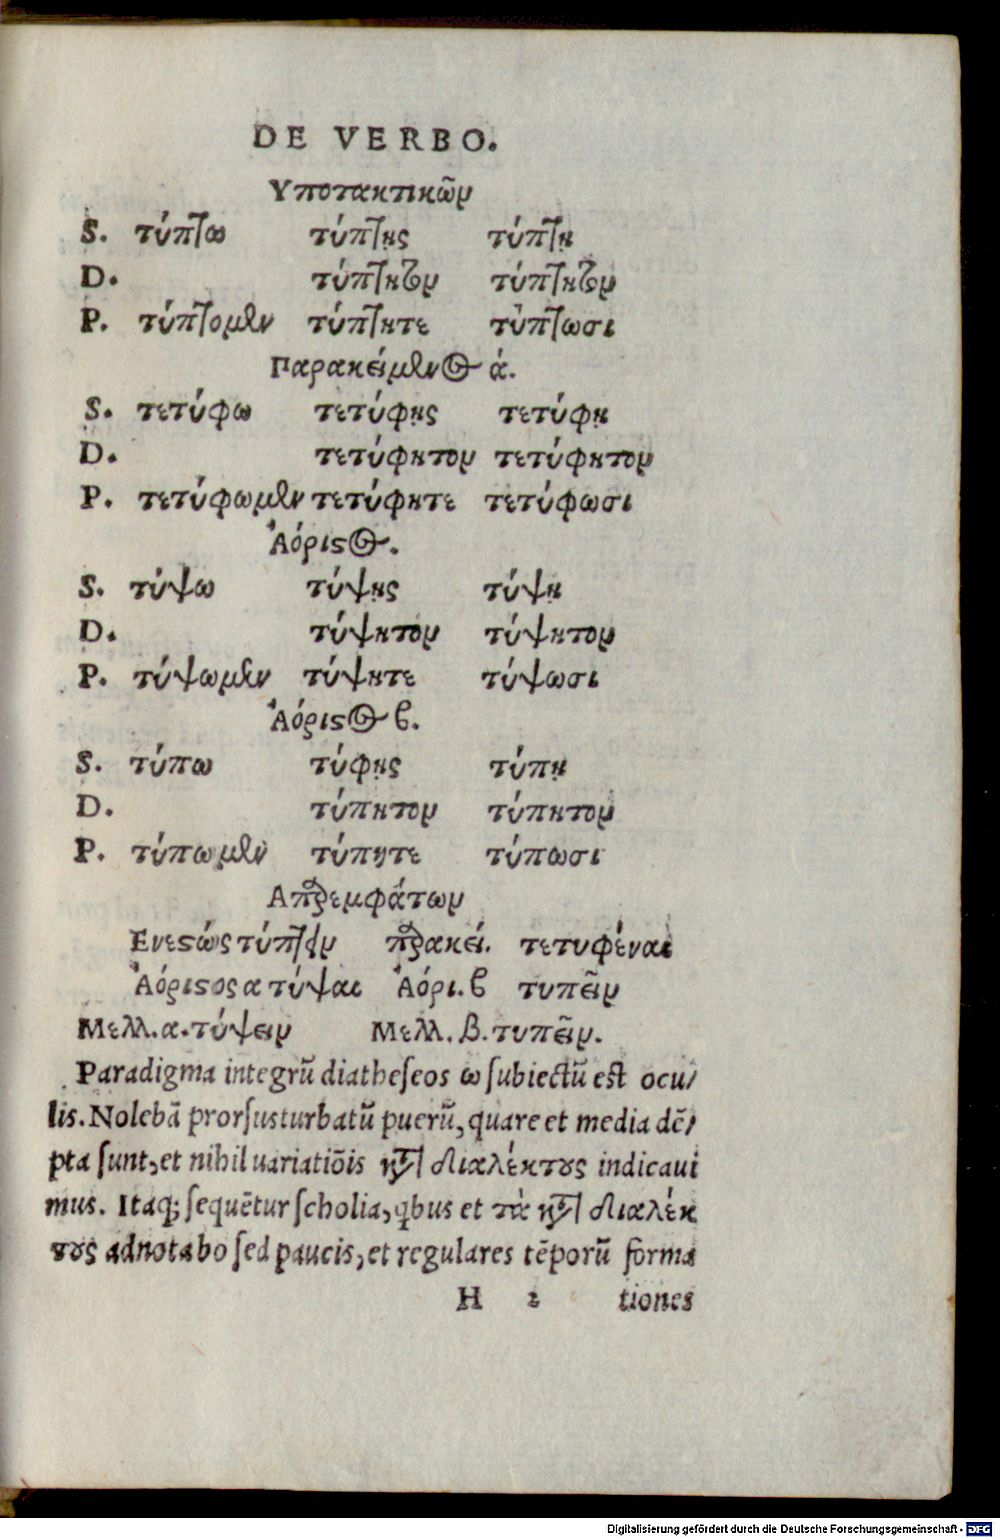 DE VERBO.
Υποτακτικῶν
S. τύπτω τύπτῃς τύπτῃ
D. τύπτητον τύπτητον
P. τύπτομεν τύπτητε τύπτωσι
Παρακείμενος ά.
S. τετύφω τετύφῃς τετύφῃ
D. τετύφητον τετύφητον
P. τετύφωμεν τετύφητε τετύφωσι
Ἀόριστος.
S. τύψω τύψῃς τύψῃ
D. τύψητον τύψητον
P. τύψωμεν τύψητε τύψωσι
Ἀόριστος β.
S. τύπω τύφῃς τύπῃ
D. τύπητον τύπητον
P. τύπωμεν τύπητε τύπωσι
Απαρεμφάτων
Ενεστώς τύπτειν παρακεί. τετυφέναι
Ἀόριστος α τύψαι Ἀόρι. β τυπεῖν
Μελλ. α. τύψειν Μελλ. β. τυπεῖν.
Paradigma integrū diatheseos ω subiectū est ocu/
lis. Nolebā prorsus turbatū puerū, quare et media dē/
pta sunt, et nihil uariatiōis κατὰ διαλέκτους indicaui
mus. Itaq; sequētur scholia, qbus et τὰ κατὰ διαλέκ
τους adnotabo sed paucis, et regulares tēporū forma
H 2 tiones
Digitalisierung gefördert durch die Deutsche Forschungsgemeinschaft - DFG